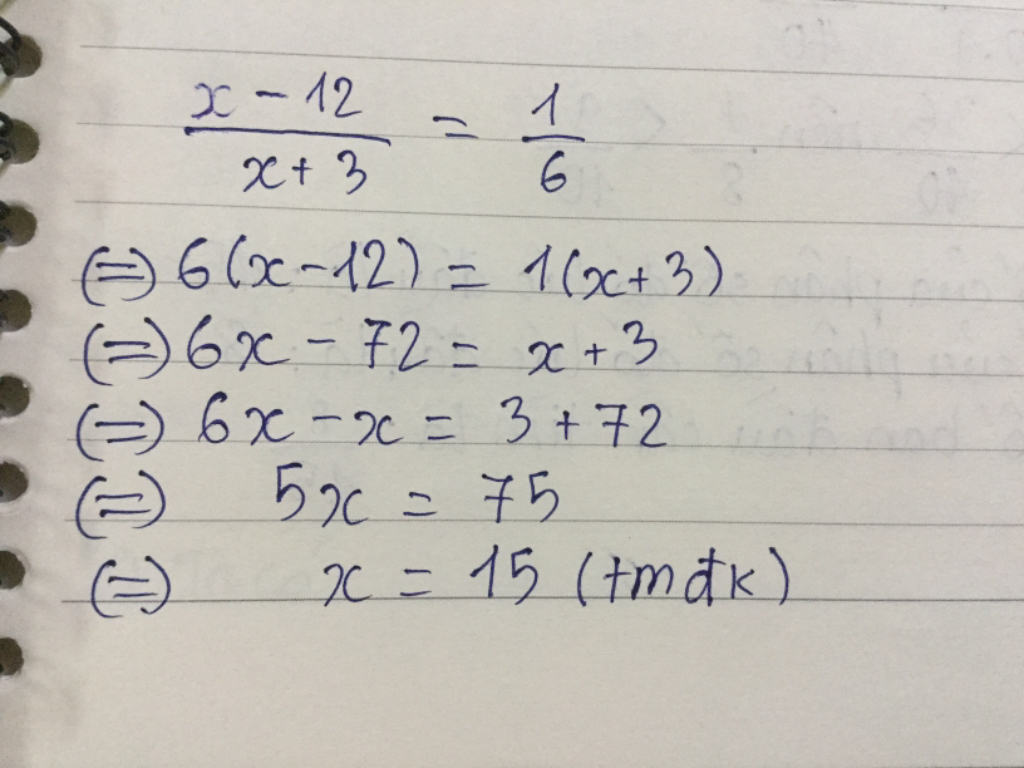 x - 12 / x + 3 = 1 / 6
(=) 6(x - 12) = 1(x + 3)
(=) 6x - 72 = x + 3
(=) 6x - x = 3 + 72
(=) 5x = 75
(=) x = 15 (tmđk)